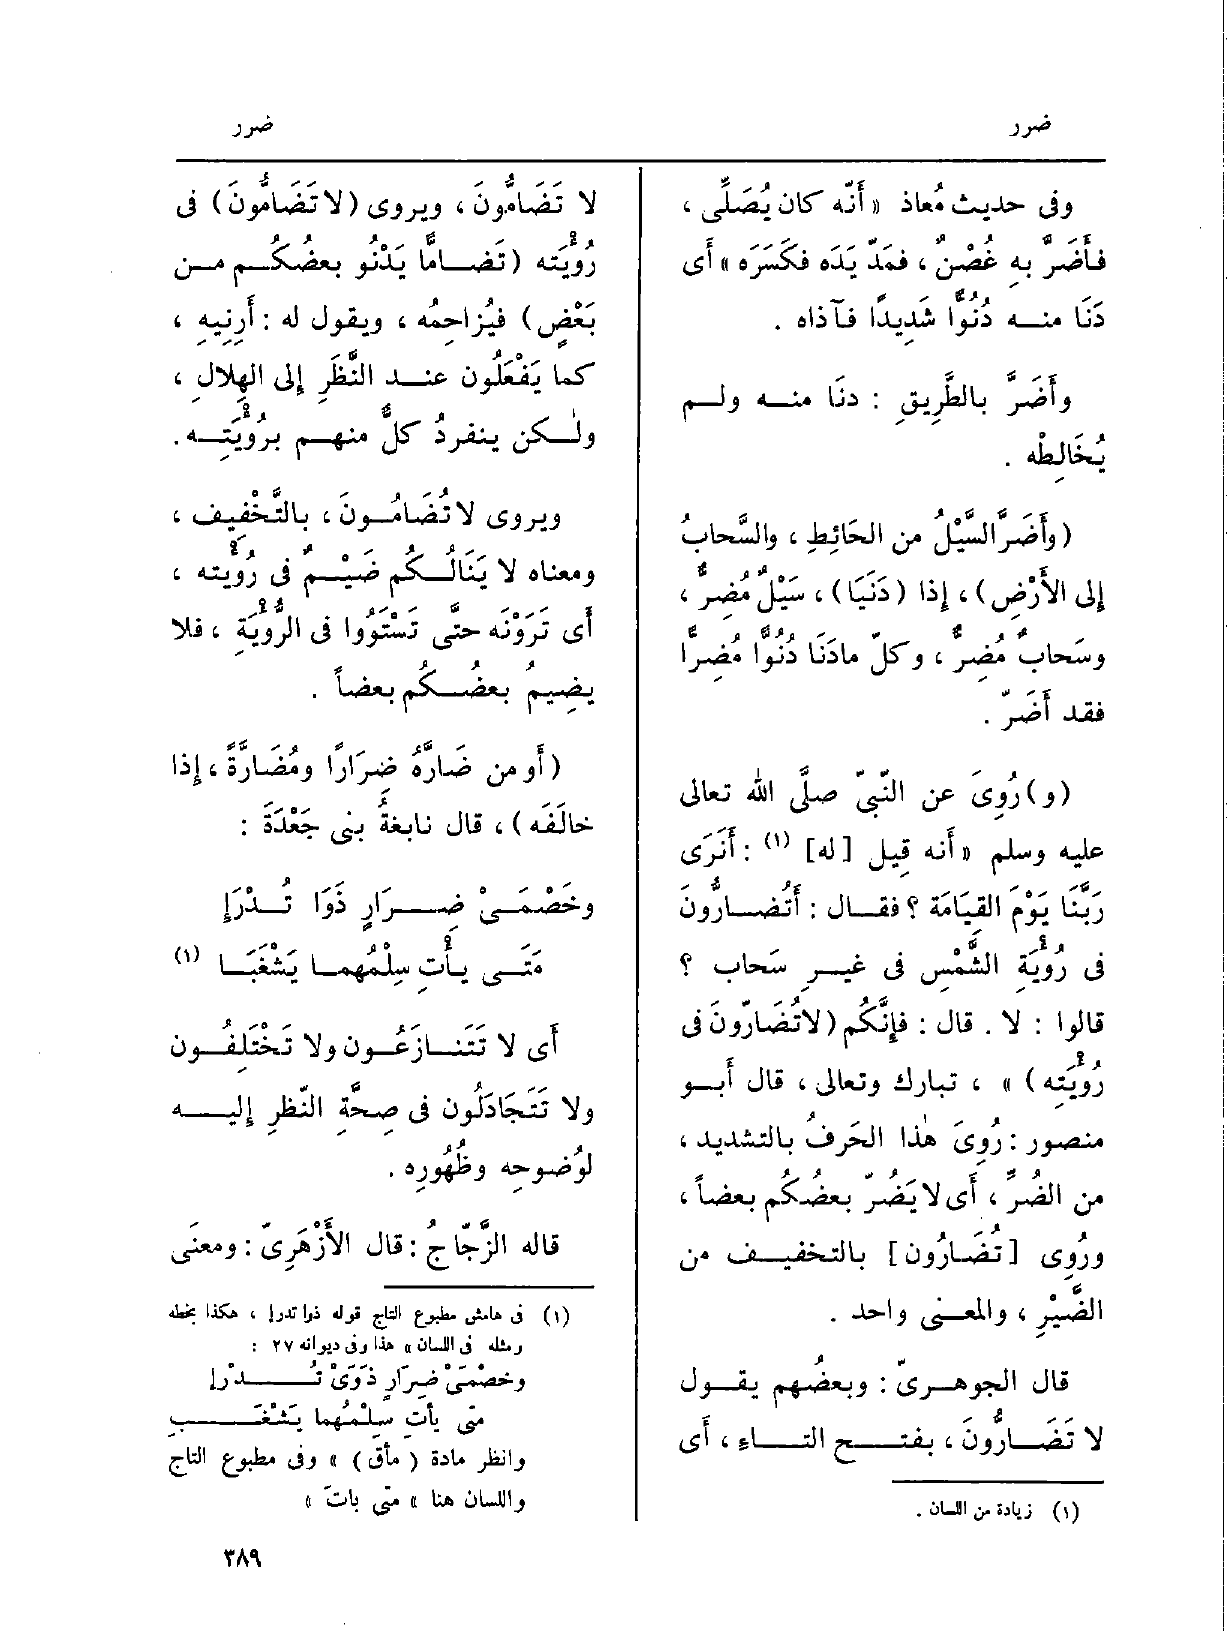 ضرر
ضرر
وفى حديث مُعاذ «أَنّه كان يُصَلِّى ،
فأَضَرَّ به غُصْنٌ ، فمَدّ يَدَه فكَسَرَه » أَى
دَنَا منه دُنُوًّا شَدِيدًا فآذاه .
وأَضَرَّ بالطَّرِيقِ : دنَا منه ولم
يُخَالِطْه .
(وأَضَرَّ السَّيْلُ من الحَائِطِ ، والسَّحابُ
إلى الأَرْضِ) ، إذا (دَنَيَا) ، سَيْلٌ مُضِرٌّ ،
وسَحابٌ مُضِرٌّ ، وكلّ مادَنَا دُنُوًّا مُضِرًّا
فقد أَضَرّ .
(و) رُوِىَ عن النّبِىّ صلَّى الله تعالى
عليه وسلم «أَنه قِيل [له] (١) : أَنَرَى
رَبَّنَا يَوْمَ القِيَامَة ؟ فقال : أَتُضارُّونَ
فى رُؤْيَةِ الشَّمْسِ فى غيرِ سَحاب ؟
قالوا : لا . قال : فإِنَّكُم (لاتُضَارّونَ فى
رُؤْيَتِه) » ، تبارك وتعالى ، قال أَبو
منصور : رُوِىَ هٰذا الحَرفُ بالتشديد ،
من الضُرِّ ، أَى لا يَضُرّ بعضُكُم بعضاً ،
ورُوِى [تُضَارُون] بالتخفيف من
الضَّيْرِ ، والمعنى واحد .
قال الجوهرىّ : وبعضُهم يقول
لا تَضَارُّونَ ، بفتح التاء ، أَى
(١) زيادة من اللسان .
لا تَضَامُّونَ ، ويروى (لا تَضَامُّونَ) فى
رُؤْيَتِه (تَضامًّا يَدْنُو بعضُكم من
بَعْضٍ) فيُزاحِمُه ، ويقول له : أَرِنِيهِ ،
كما يَفْعَلُون عند النَّظَرِ إلى الهِلالِ ،
ولٰكن ينفردُ كلٌّ منهم برُؤْيَتِه .
ويروى لا تُضَامُونَ ، بالتَّخْفِيف ،
ومعناه لا يَنَالُكُم ضَيْمٌ فى رُؤيته ،
أَى تَرَوْنَه حتَّى تَسْتَوُوا فى الرُّؤيَةِ ، فلا
يضِيمُ بعضُكُم بعضاً .
(أَو من ضَارَّهُ ضِرَارًا ومُضَارَّةً ، إذا
خالَفَه) ، قال نابغةُ بنى جَعْدَةَ :
وخَصْمَىْ ضِرَارٍ ذَوَا تُدْرَإِ
مَتَى يأْتِ سِلْمُهما يَشْغَبَا (١)
أَى لا تَتَنازَعُون ولا تَخْتَلِفُون
ولا تَتَجَادَلُون فى صِحَّةِ النَّظرِ إليه
لوُضوحِه وظُهُورِه .
قاله الزَّجّاجُ : قال الأَزْهَرِىّ : ومعنَى
(١) فى هامش مطبوع التاج قوله ذوا تدرإ ، هكذا بخطه
ومثله فى اللسان » هذا وفى ديوانه ٢٧ :
وخصْمَىْ ضِرَارٍ ذَوَىْ تُدْرَإِ
متى يأت سِلْمُهما يَشْغَبِ
وانظر مادة ( مأق ) » وفى مطبوع التاج
واللسان هنا » متى باتَ »
٣٨٩